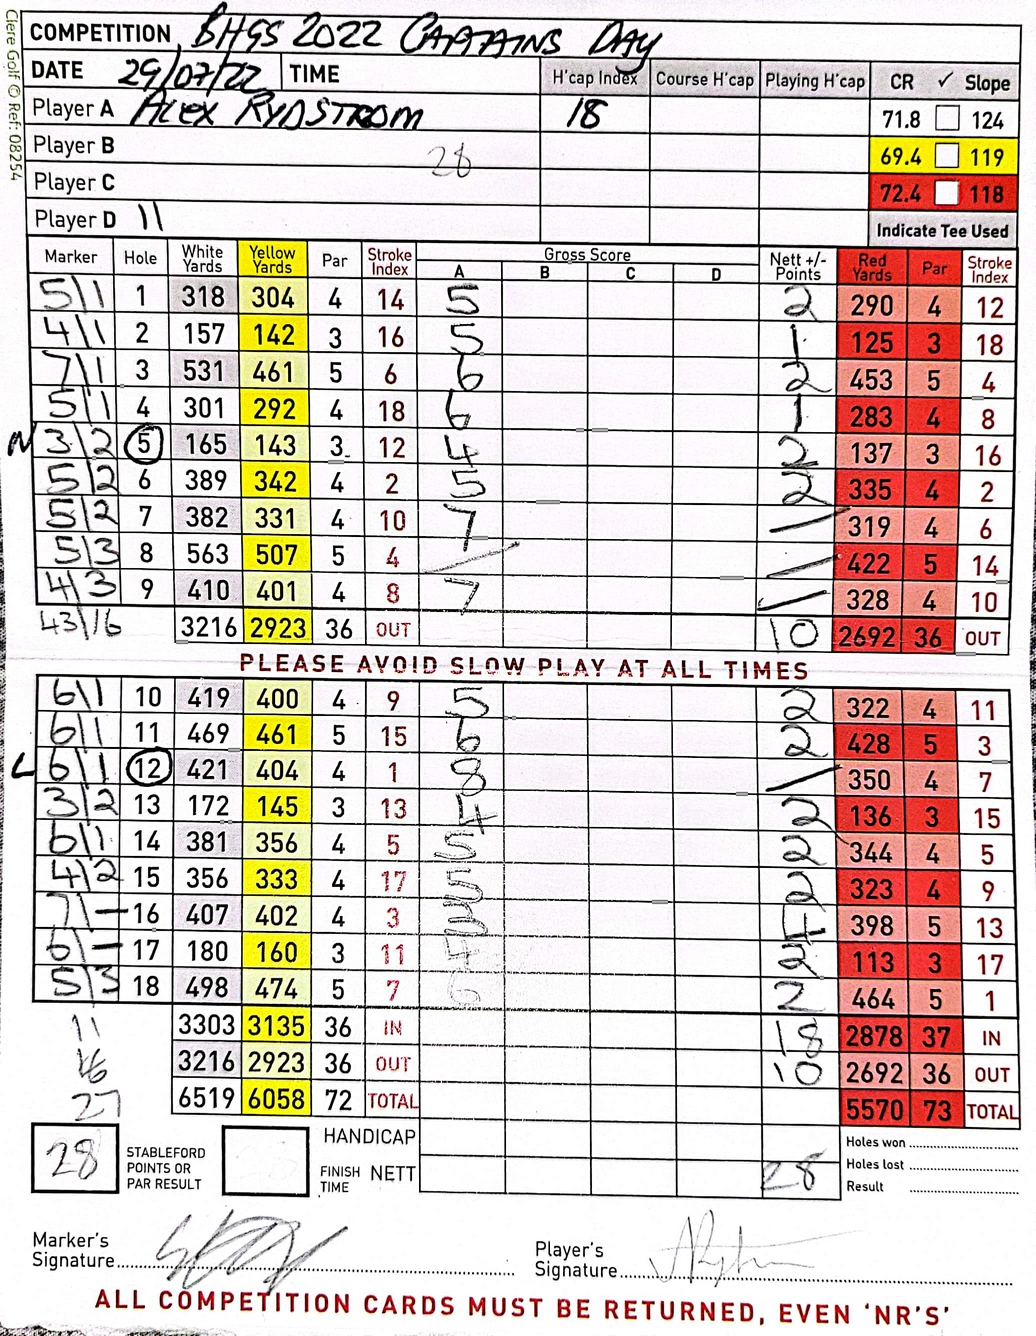 Clere Golf © Ref: 08254
COMPETITION BHGS 2022 CAPTAINS DAY
DATE 29/07/22 TIME H'cap Index Course H'cap Playing H'cap CR ✓ Slope
Player A ALEX RYDSTROM 18 71.8 124
Player B 28 69.4 119
Player C 72.4 118
Player D 11 Indicate Tee Used
Marker Hole White Yards Yellow Yards Par Stroke Index Gross Score Nett +/- Points Red Yards Par Stroke Index
A B C D
5|1 1 318 304 4 14 5 2 290 4 12
4|1 2 157 142 3 16 5 1 125 3 18
7|1 3 531 461 5 6 6 2 453 5 4
5|1 4 301 292 4 18 6 1 283 4 8
N 3|2 5 165 143 3 12 4 2 137 3 16
5|2 6 389 342 4 2 5 2 335 4 2
5|2 7 382 331 4 10 7 / 319 4 6
5|3 8 563 507 5 4 / / 422 5 14
4|3 9 410 401 4 8 7 / 328 4 10
43/16 3216 2923 36 OUT 10 2692 36 OUT
PLEASE AVOID SLOW PLAY AT ALL TIMES
6|1 10 419 400 4 9 5 2 322 4 11
6|1 11 469 461 5 15 6 2 428 5 3
L 6|1 12 421 404 4 1 8 / 350 4 7
3|2 13 172 145 3 13 4 2 136 3 15
6|1 14 381 356 4 5 5 2 344 4 5
4|2 15 356 333 4 17 5 2 323 4 9
7|- 16 407 402 4 3 3 4 398 5 13
6|- 17 180 160 3 11 4 2 113 3 17
5|3 18 498 474 5 7 6 2 464 5 1
11 3303 3135 36 IN 18 2878 37 IN
16 3216 2923 36 OUT 10 2692 36 OUT
27 6519 6058 72 TOTAL 5570 73 TOTAL
28 STABLEFORD POINTS OR PAR RESULT HANDICAP Holes won
FINISH TIME NETT 28 Holes lost
Result
Marker's Signature
Player's Signature
ALL COMPETITION CARDS MUST BE RETURNED, EVEN 'NR'S'